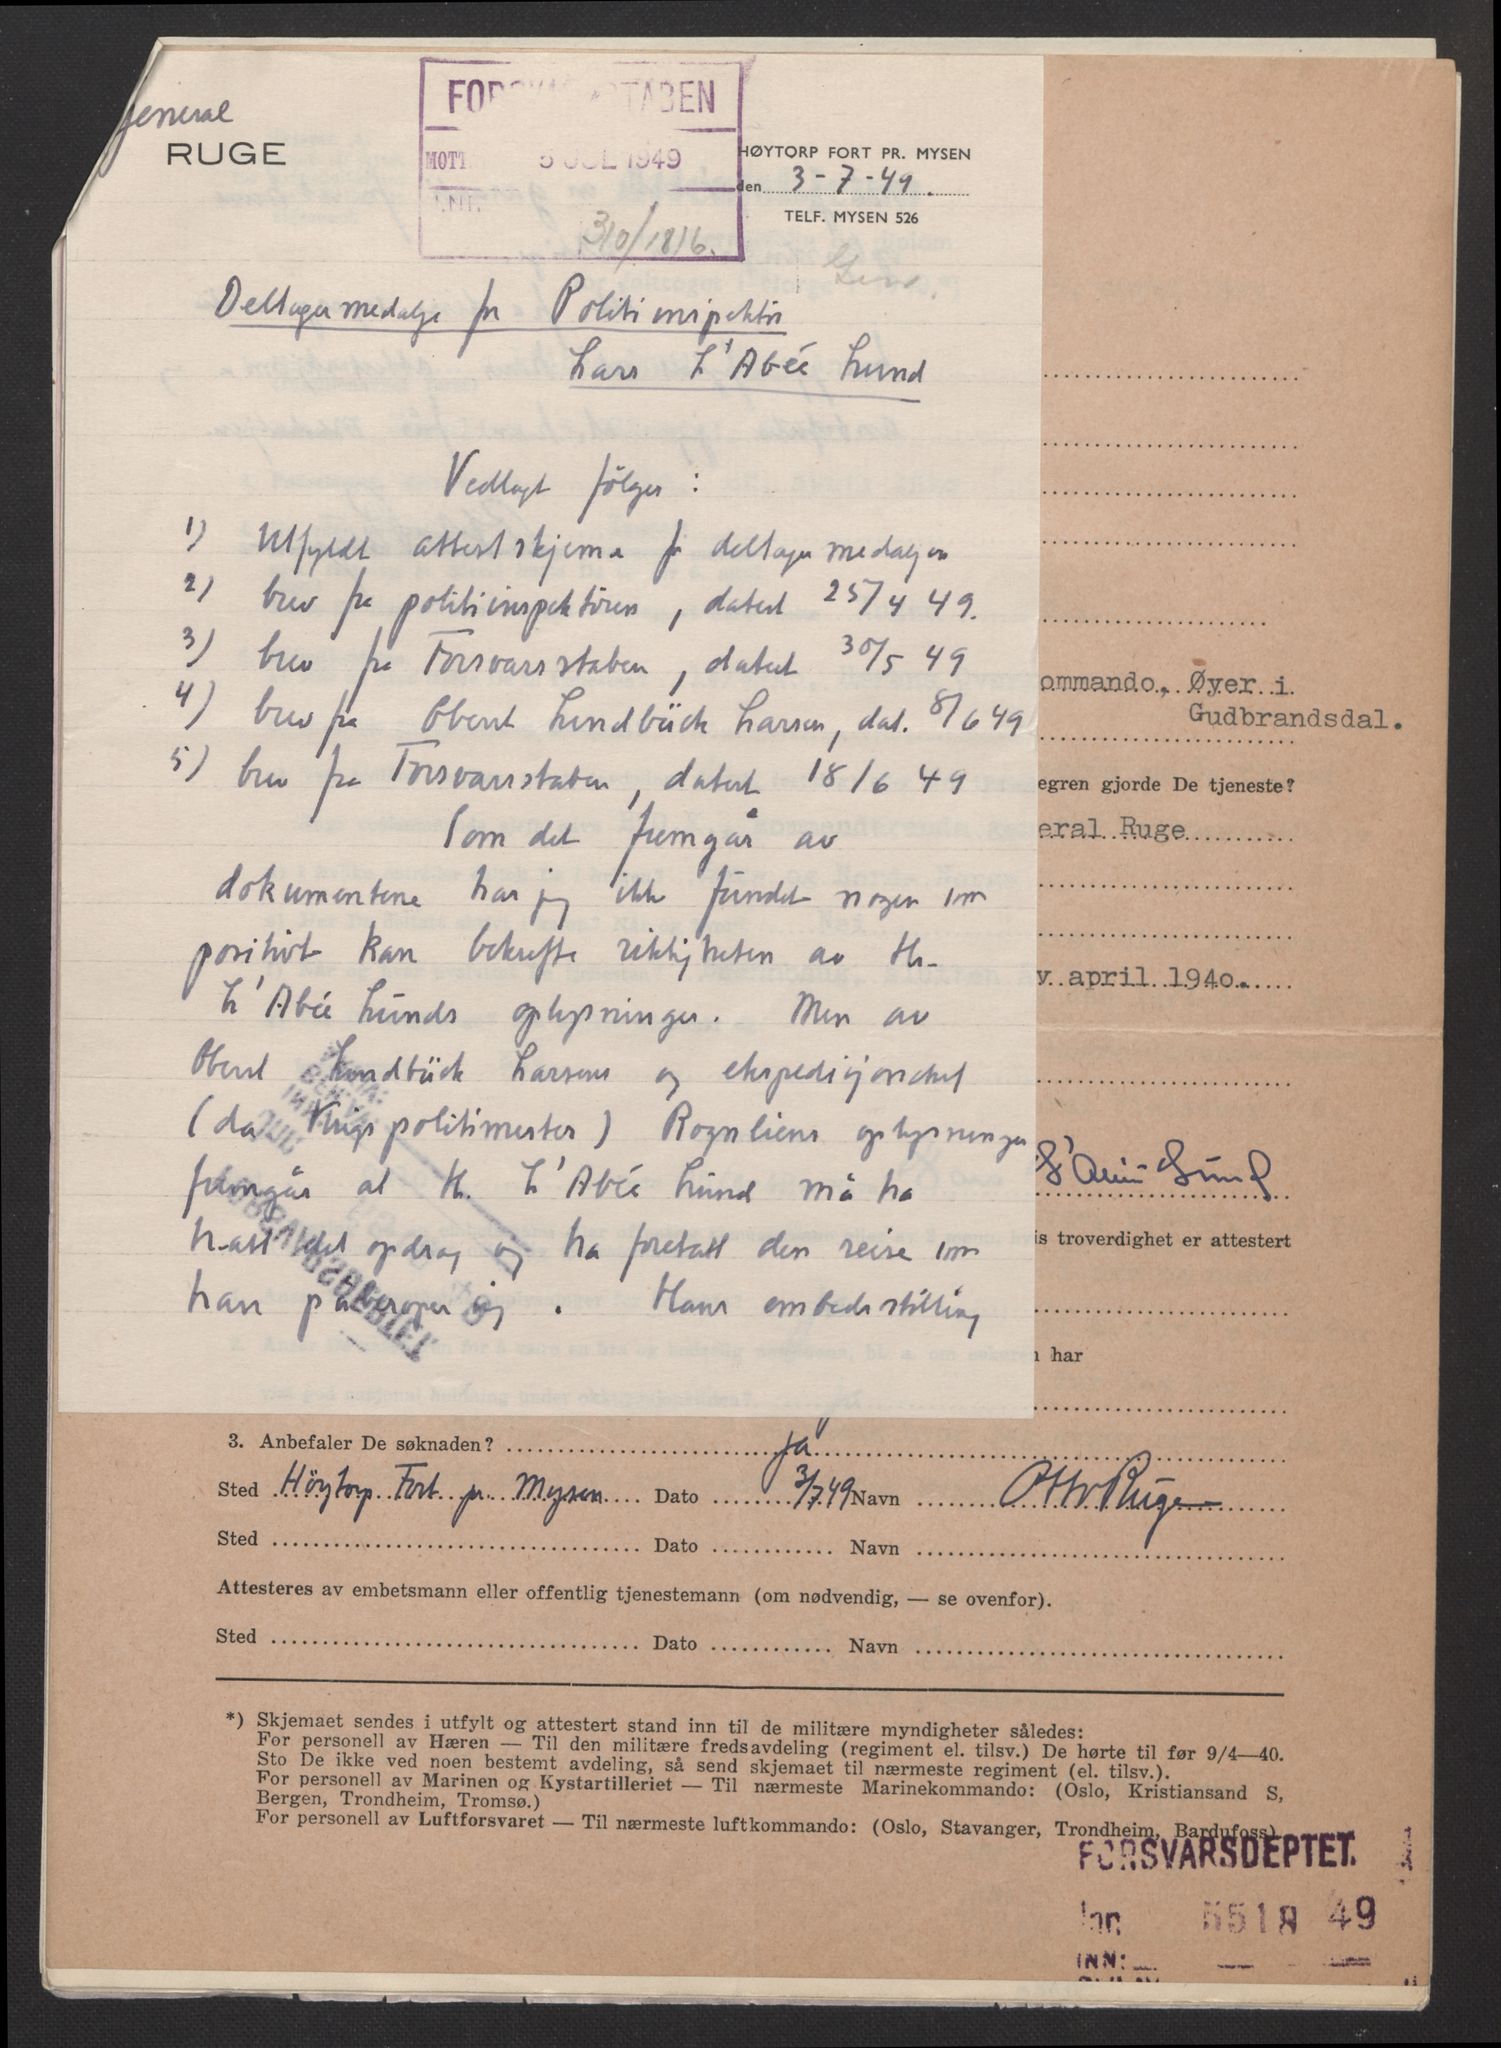 General
RUGE
FORSVARSSTABEN
MOTT 5 JUL 1949
J.NR.
310/1816.
HØYTORP FORT PR. MYSEN
den 3-7-49.
TELF. MYSEN 526
Deltagermedalje for Politiinspektør
Lars L'Abée Lund
Vedlagt følger:
1) Utfyldt attestskjema for deltagermedaljen
2) brev fra politiinspektøren, datert 25/4 49.
3) brev fra Forsvarsstaben, datert 30/5 49
4) brev fra Oberst Lundbäck Larsen, dat. 8/6 49
5) brev fra Forsvarsstaben, datert 18/6 49
Som det fremgår av
dokumentene har jeg ikke fundet nogen som
positivt kan bekrefte riktigheten av Hr.
L'Abée Lunds oplysninger. Men av
Oberst Lundbäck Larsens og ekspedisjonschef
(da Krigspolitimester) Rognliens oplysninger
fremgår at Hr. L'Abée Lund må ha
hatt det opdrag og ha foretatt den reise som
han påberoper sig. Hans embedsstilling
ommando, Øyer i
Gudbrandsdal.
egren gjorde De tjeneste?
eral Ruge
v april 1940.
L'Abée Lund
is troverdighet er attestert
n har
3. Anbefaler De søknaden? ja
Sted Høytorp Fort pr. Mysen Dato 3/7.49 Navn Otto Ruge
Sted Dato Navn
Attesteres av embetsmann eller offentlig tjenestemann (om nødvendig, — se ovenfor).
Sted Dato Navn
*) Skjemaet sendes i utfylt og attestert stand inn til de militære myndigheter således:
For personell av Hæren — Til den militære fredsavdeling (regiment el. tilsv.) De hørte til før 9/4—40.
Sto De ikke ved noen bestemt avdeling, så send skjemaet til nærmeste regiment (el. tilsv.).
For personell av Marinen og Kystartilleriet — Til nærmeste Marinekommando: (Oslo, Kristiansand S,
Bergen, Trondheim, Tromsø.)
For personell av Luftforsvaret — Til nærmeste luftkommando: (Oslo, Stavanger, Trondheim, Bardufoss).
FORSVARSDEPTET.
Jnr 5518 49
INN: